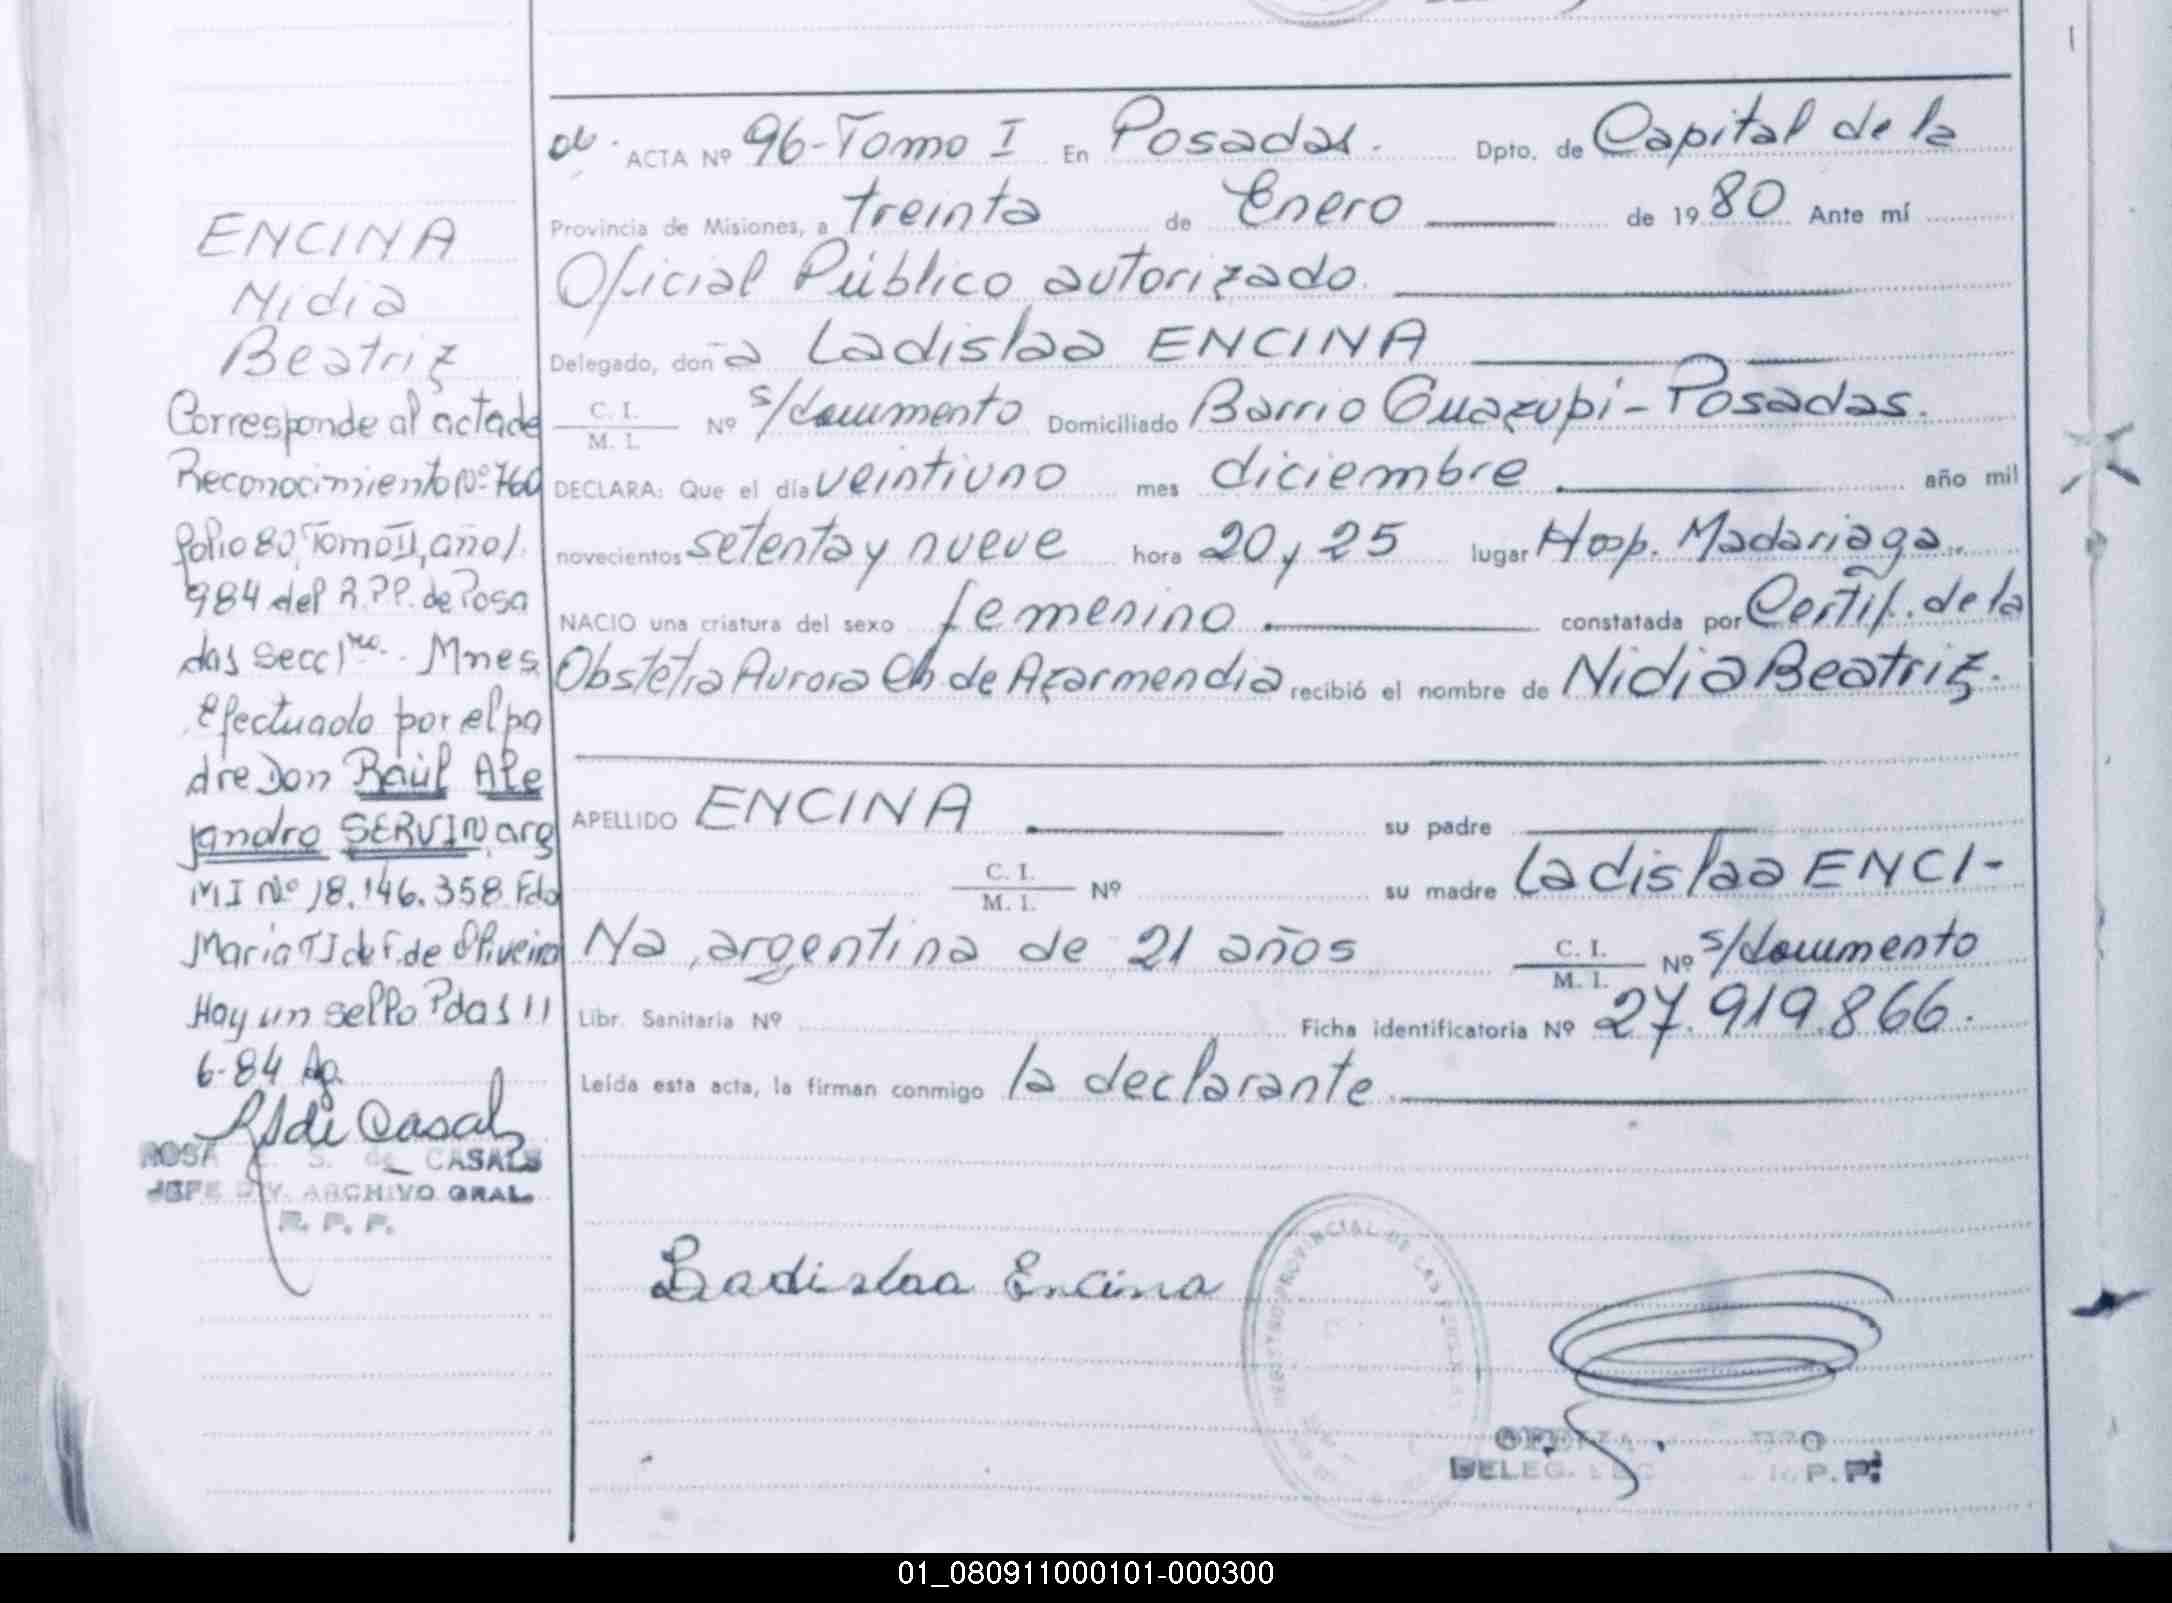 ENCINA
Nidia
Beatriz
Corresponde al acta de
Reconocimiento Nº 760
folio 80, Tomo II, año 1.
984 del R.P.P. de Posa
das Secc 1ra. Mnes
Efectuado por el pa
dre Don Raúl Ale
jandro SERVIN, arg
MI Nº 18.146.358 Fdo
Maria de Oliveira
Hay un sello Pdas 11
6-84
ROSA S. de CASALS
JEFE DIV. ARCHIVO GRAL.
R. P. P.
ACTA Nº 96-Tomo I En Posadas. Dpto. de Capital de la
Provincia de Misiones, a treinta de Enero de 1980 Ante mí
Oficial Público autorizado.
Delegado, doña Ladislaa ENCINA
C. I.
M. I. Nº s/documento Domiciliado Barrio Guazupi - Posadas.
DECLARA: Que el día veintiuno mes diciembre año mil
novecientos setenta y nueve hora 20 y 25 lugar Hosp. Madariaga.
NACIO una criatura del sexo femenino constatada por Certif. de la
Obstetra Aurora Ch de Azarmendia recibió el nombre de Nidia Beatriz.
APELLIDO ENCINA su padre
C. I.
M. I. Nº su madre Ladislaa ENCI-
Na, argentina de 21 años C. I.
M. I. Nº s/documento
Libr. Sanitaria Nº Ficha identificatoria Nº 27.919.866.
Leída esta acta, la firman conmigo la declarante.
Ladislaa Encina
REGISTRO PROVINCIAL DE LAS PERSONAS
DELEG. P.P.
01_080911000101-000300